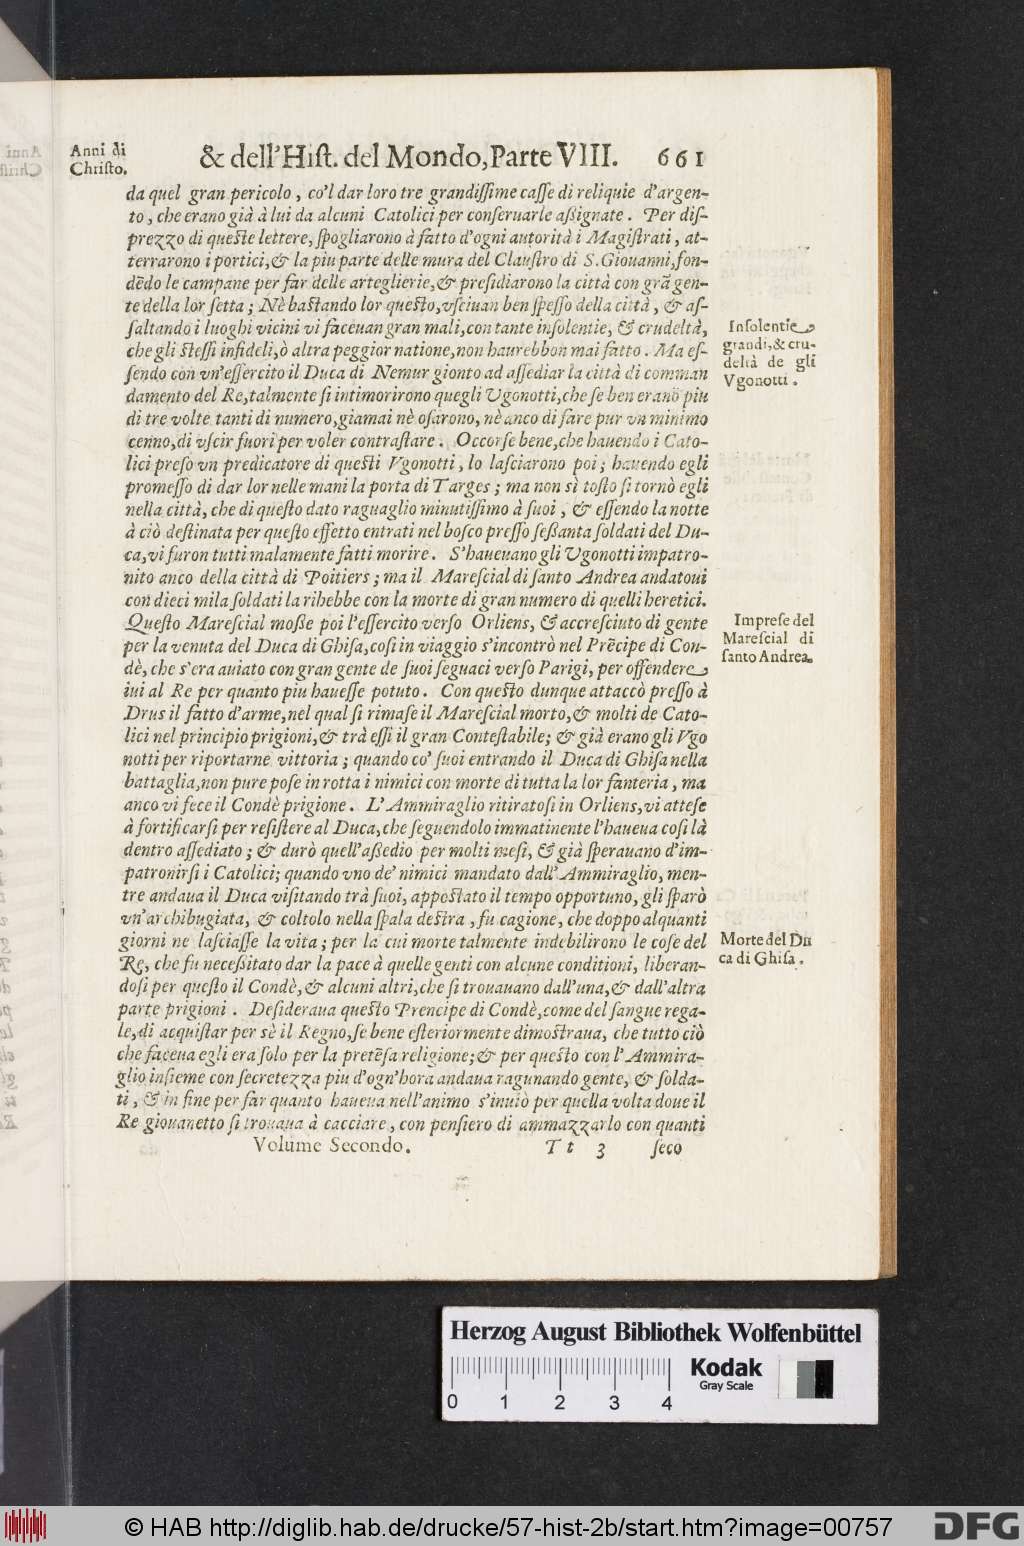 Anni di
Christo.
& dell'Hiſt. del Mondo, Parte VIII. 661
da quel gran pericolo, co'l dar loro tre grandiſſime caſſe di reliquie d'argen-
to, che erano già à lui da alcuni Catolici per conſeruarle aßignate. Per diſ-
prezzo di queſte lettere, ſpogliarono à fatto d'ogni autorità i Magiſtrati, at-
terrarono i portici, & la piu parte delle mura del Clauſtro di S. Giouanni, fon-
dēdo le campane per far delle arteglierie, & preſidiarono la città con grā gen-
te della lor ſetta; Nè baſtando lor queſto, vſciuan ben ſpeſſo della città, & aſ-
ſaltando i luoghi vicini vi faceuan gran mali, con tante inſolentie, & crudeltà,
che gli ſteſſi infideli, ò altra peggior natione, non haurebbon mai fatto. Ma eſ-
ſendo con vn'eſſercito il Duca di Nemur gionto ad aſſediar la città di comman
damento del Re, talmente ſi intimorirono quegli Vgonotti, che ſe ben erano piu
di tre volte tanti di numero, giamai nè oſarono, nè anco di fare pur vn minimo
cenno, di vſcir fuori per voler contraſtare. Occorſe bene, che hauendo i Cato-
lici preſo vn predicatore di queſti Vgonotti, lo laſciarono poi; hauendo egli
promeſſo di dar lor nelle mani la porta di Targes; ma non sì toſto ſi tornò egli
nella città, che di queſto dato raguaglio minutiſſimo à ſuoi, & eſſendo la notte
à ciò deſtinata per queſto effetto entrati nel boſco preſſo ſeßanta ſoldati del Du-
ca, vi furon tutti malamente fatti morire. S'haueuano gli Vgonotti impatro-
nito anco della città di Poitiers; ma il Mareſcial di ſanto Andrea andatoui
con dieci mila ſoldati la rihebbe con la morte di gran numero di quelli heretici.
Queſto Mareſcial moße poi l'eſſercito verſo Orliens, & accreſciuto di gente
per la venuta del Duca di Ghiſa, coſi in viaggio s'incontrò nel Prēcipe di Con-
dè, che s'era auiato con gran gente de ſuoi ſeguaci verſo Parigi, per offendere
iui al Re per quanto piu haueſſe potuto. Con queſto dunque attaccò preſſo à
Drus il fatto d'arme, nel qual ſi rimaſe il Mareſcial morto, & molti de Cato-
lici nel principio prigioni, & trà eſſi il gran Conteſtabile; & già erano gli Vgo
notti per riportarne vittoria; quando co' ſuoi entrando il Duca di Ghiſa nella
battaglia, non pure poſe in rotta i nimici con morte di tutta la lor fanteria, ma
anco vi fece il Condè prigione. L'Ammiraglio ritiratoſi in Orliens, vi atteſe
à fortificarſi per reſiſtere al Duca, che ſeguendolo immatinente l'haueua coſi là
dentro aſſediato; & durò quell'aßedio per molti meſi, & già ſperauano d'im-
patronirſi i Catolici; quando vno de' nimici mandato dall'Ammiraglio, men-
tre andaua il Duca viſitando trà ſuoi, appoſtato il tempo opportuno, gli ſparò
vn'archibugiata, & coltolo nella ſpala deſtra, fu cagione, che doppo alquanti
giorni ne laſciaſſe la vita; per la cui morte talmente indebilirono le coſe del
Re, che fu neceßitato dar la pace à quelle genti con alcune conditioni, liberan-
doſi per queſto il Condè, & alcuni altri, che ſi trouauano dall'una, & dall'altra
parte prigioni. Deſideraua queſto Prencipe di Condè, come del ſangue rega-
le, di acquiſtar per sè il Regno, ſe bene eſteriormente dimoſtraua, che tutto ciò
che faceua egli era ſolo per la pretēſa religione; & per queſto con l'Ammira-
glio inſieme con ſecretezza piu d'ogn'hora andaua ragunando gente, & ſolda-
ti, & in fine per far quanto haueua nell'animo s'inuiò per quella volta doue il
Re giouanetto ſi trouaua à cacciare, con penſiero di ammazzarlo con quanti
Volume Secondo. Tt 3 ſeco
Inſolentie
grandi, & cru-
deltà de gli
Vgonotti.
Impreſe del
Mareſcial di
ſanto Andrea.
Morte del Du
ca di Ghiſa.
Herzog August Bibliothek Wolfenbüttel
0 1 2 3 4
Kodak
Gray Scale
© HAB http://diglib.hab.de/drucke/57-hist-2b/start.htm?image=00757
DFG